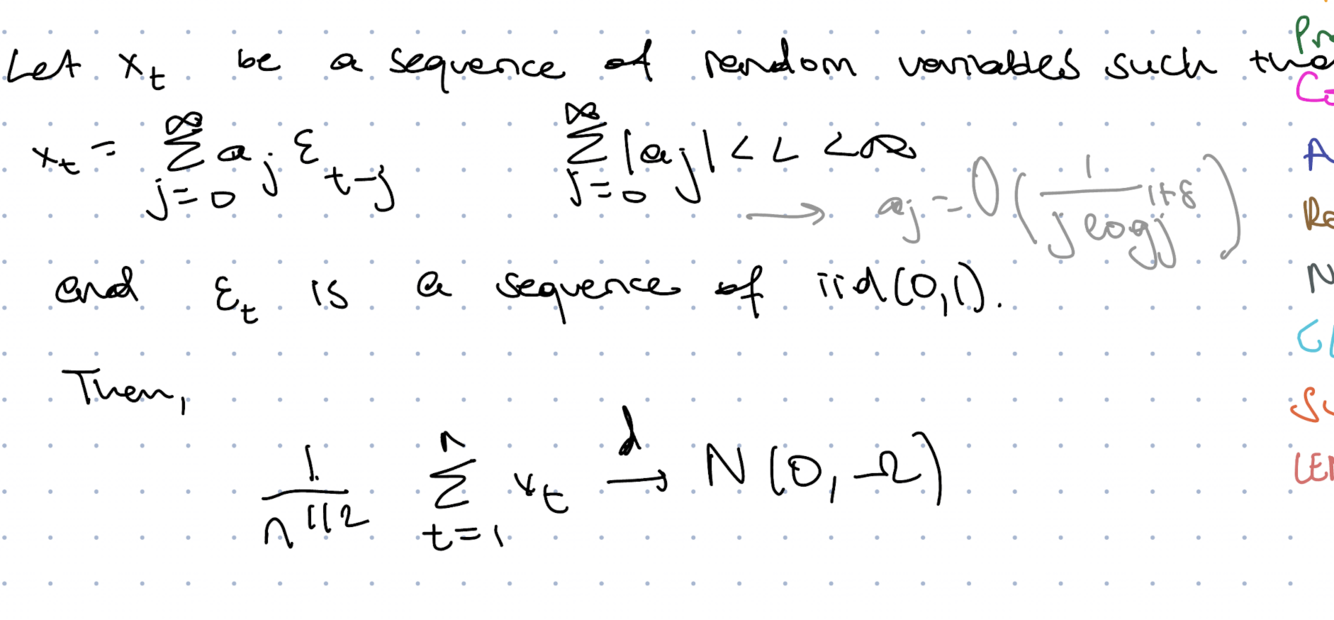 Let x_t be a sequence of random variables such
x_t = ∑_{j=0}^{∞} a_j ε_{t-j}     ∑_{j=0}^{∞} |a_j| < L < ∞
→ a_j = O(1/(j log j^{1+δ}))
and ε_t is a sequence of iid(0,1).
Then,
1/n^{1/2} ∑_{t=1}^{n} x_t →^d N(0, Ω)